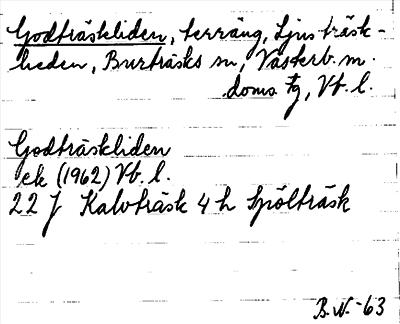 Godträskliden, terräng, Ljusträsk-
heden, Burträsks sn, Västerb. m.
doms tg, Vb. l.
Godträskliden
ek (1962) Vb. l.
22 J Kalvträsk 4 h Spölträsk
B. N. -63